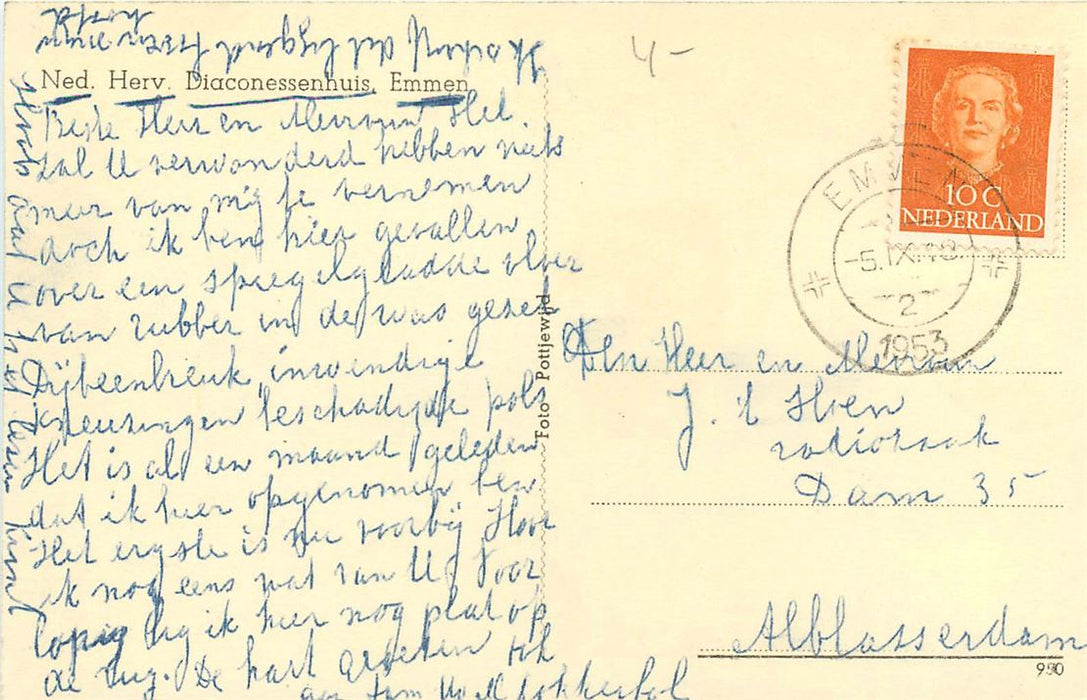 Ned. Herv. Diaconessenhuis, Emmen
Beste Heer en Mevrouw Hoen
Zal U verwonderd hebben niets
meer van mij te vernemen
doch ik ben hier gevallen
over een spiegelgladde vloer
van rubber in de was gezet
Dijbeenbreuk, inwendige
kneuzingen beschadigde pols
Het is al een maand geleden
dat ik hier opgenomen ben
Het ergste is nu voorbij Hoor
ik nog eens wat van U, Voor
lopig lig ik hier nog plat op
de rug. De hart groeten ook
aan
Hoop dat U het lezen kunt
Foto Pottjewijd
4-
10 C
NEDERLAND
EMMEN
-5.IX.
2
1953
Den Heer en Mevrouw
J. 't Hoen
radiozaak
Dam 35
Alblasserdam
950